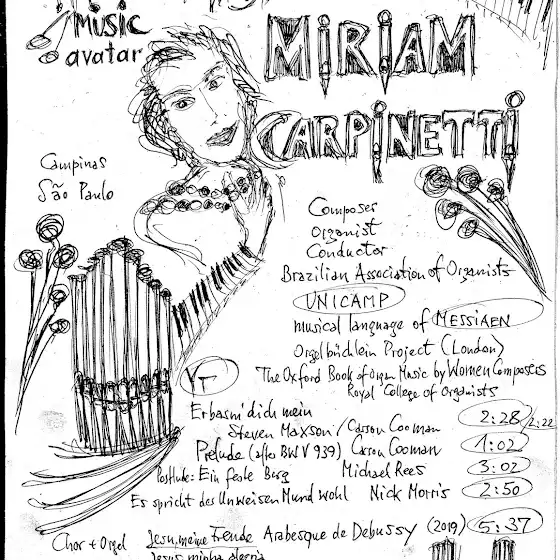 MUSIC
avatar
MIRIAM
CARPINETTI
Campinas
São Paulo
Composer
Organist
Conductor
Brazilian Association of Organists
UNICAMP
musical language of MESSIAEN
Orgelbüchlein Project (London)
YT
The Oxford Book of Organ Music by Women Composers
Royal College of Organists
Erbarm' dich mein
Steven Maxson / Carson Cooman 2:28 / 2:22
Prelude (after BWV 939) Carson Cooman 1:02
Postlude: Ein feste Burg Michael Rees 3:02
Es spricht des Unweisen Mund wohl Nick Morris 2:50
Chor + Orgel Jesu, meine Freude Arabesque de Debussy (2019) 5:37
Jesus minha alegria